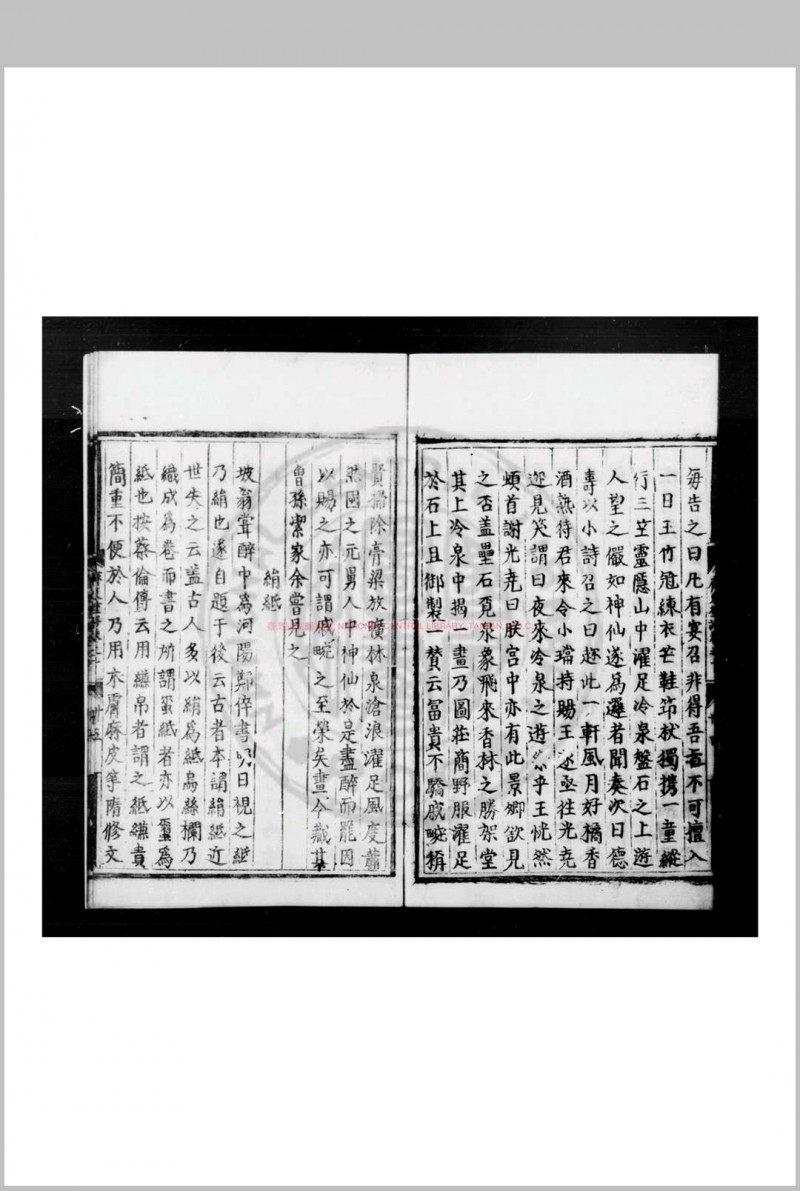 毎告之曰凡有宴召非得吾旨不可擅入
一日王竹冠練衣芒鞋筇杖獨携一童縱
行三竺靈隱山中濯足冷泉盤石之上遊
人望之儼如神仙遂爲邏者聞奏次日德
壽以小詩召之曰趂此一軒風月好橘香
酒熟待君來令小璫持賜王遂亟徃光堯
迎見笑謂曰夜來冷泉之遊樂乎王恍然
頓首謝光堯曰朕宮中亦有此景卿欲見
之否盖壘石疏泉象飛來香林之勝架堂
其上冷泉中揭一畫乃圖莊簡野服濯足
於石上且御製一賛云富貴不驕戚畹稱
賢掃除膏粱放曠林泉滄浪濯足風度蕭
然國之元舅人中神仙於是盡醉而罷因
以賜之亦可謂戚畹之至榮矣畫今藏其
曾孫潔家余嘗見之
絹紙
坡翁嘗醉中爲河陽鄭倅書明日視之紙
乃絹也遂自題于後云古者本謂絹紙近
世失之云盖古人多以絹爲紙烏絲欄乃
織成爲卷而書之所謂蠒紙者亦以蠒爲
紙也按蔡倫傳云用縑帛者謂之紙縑貴
簡重不便於人乃用木膚麻皮等隋修文
NATIONAL CENTRAL LIBRARY, TAIWAN